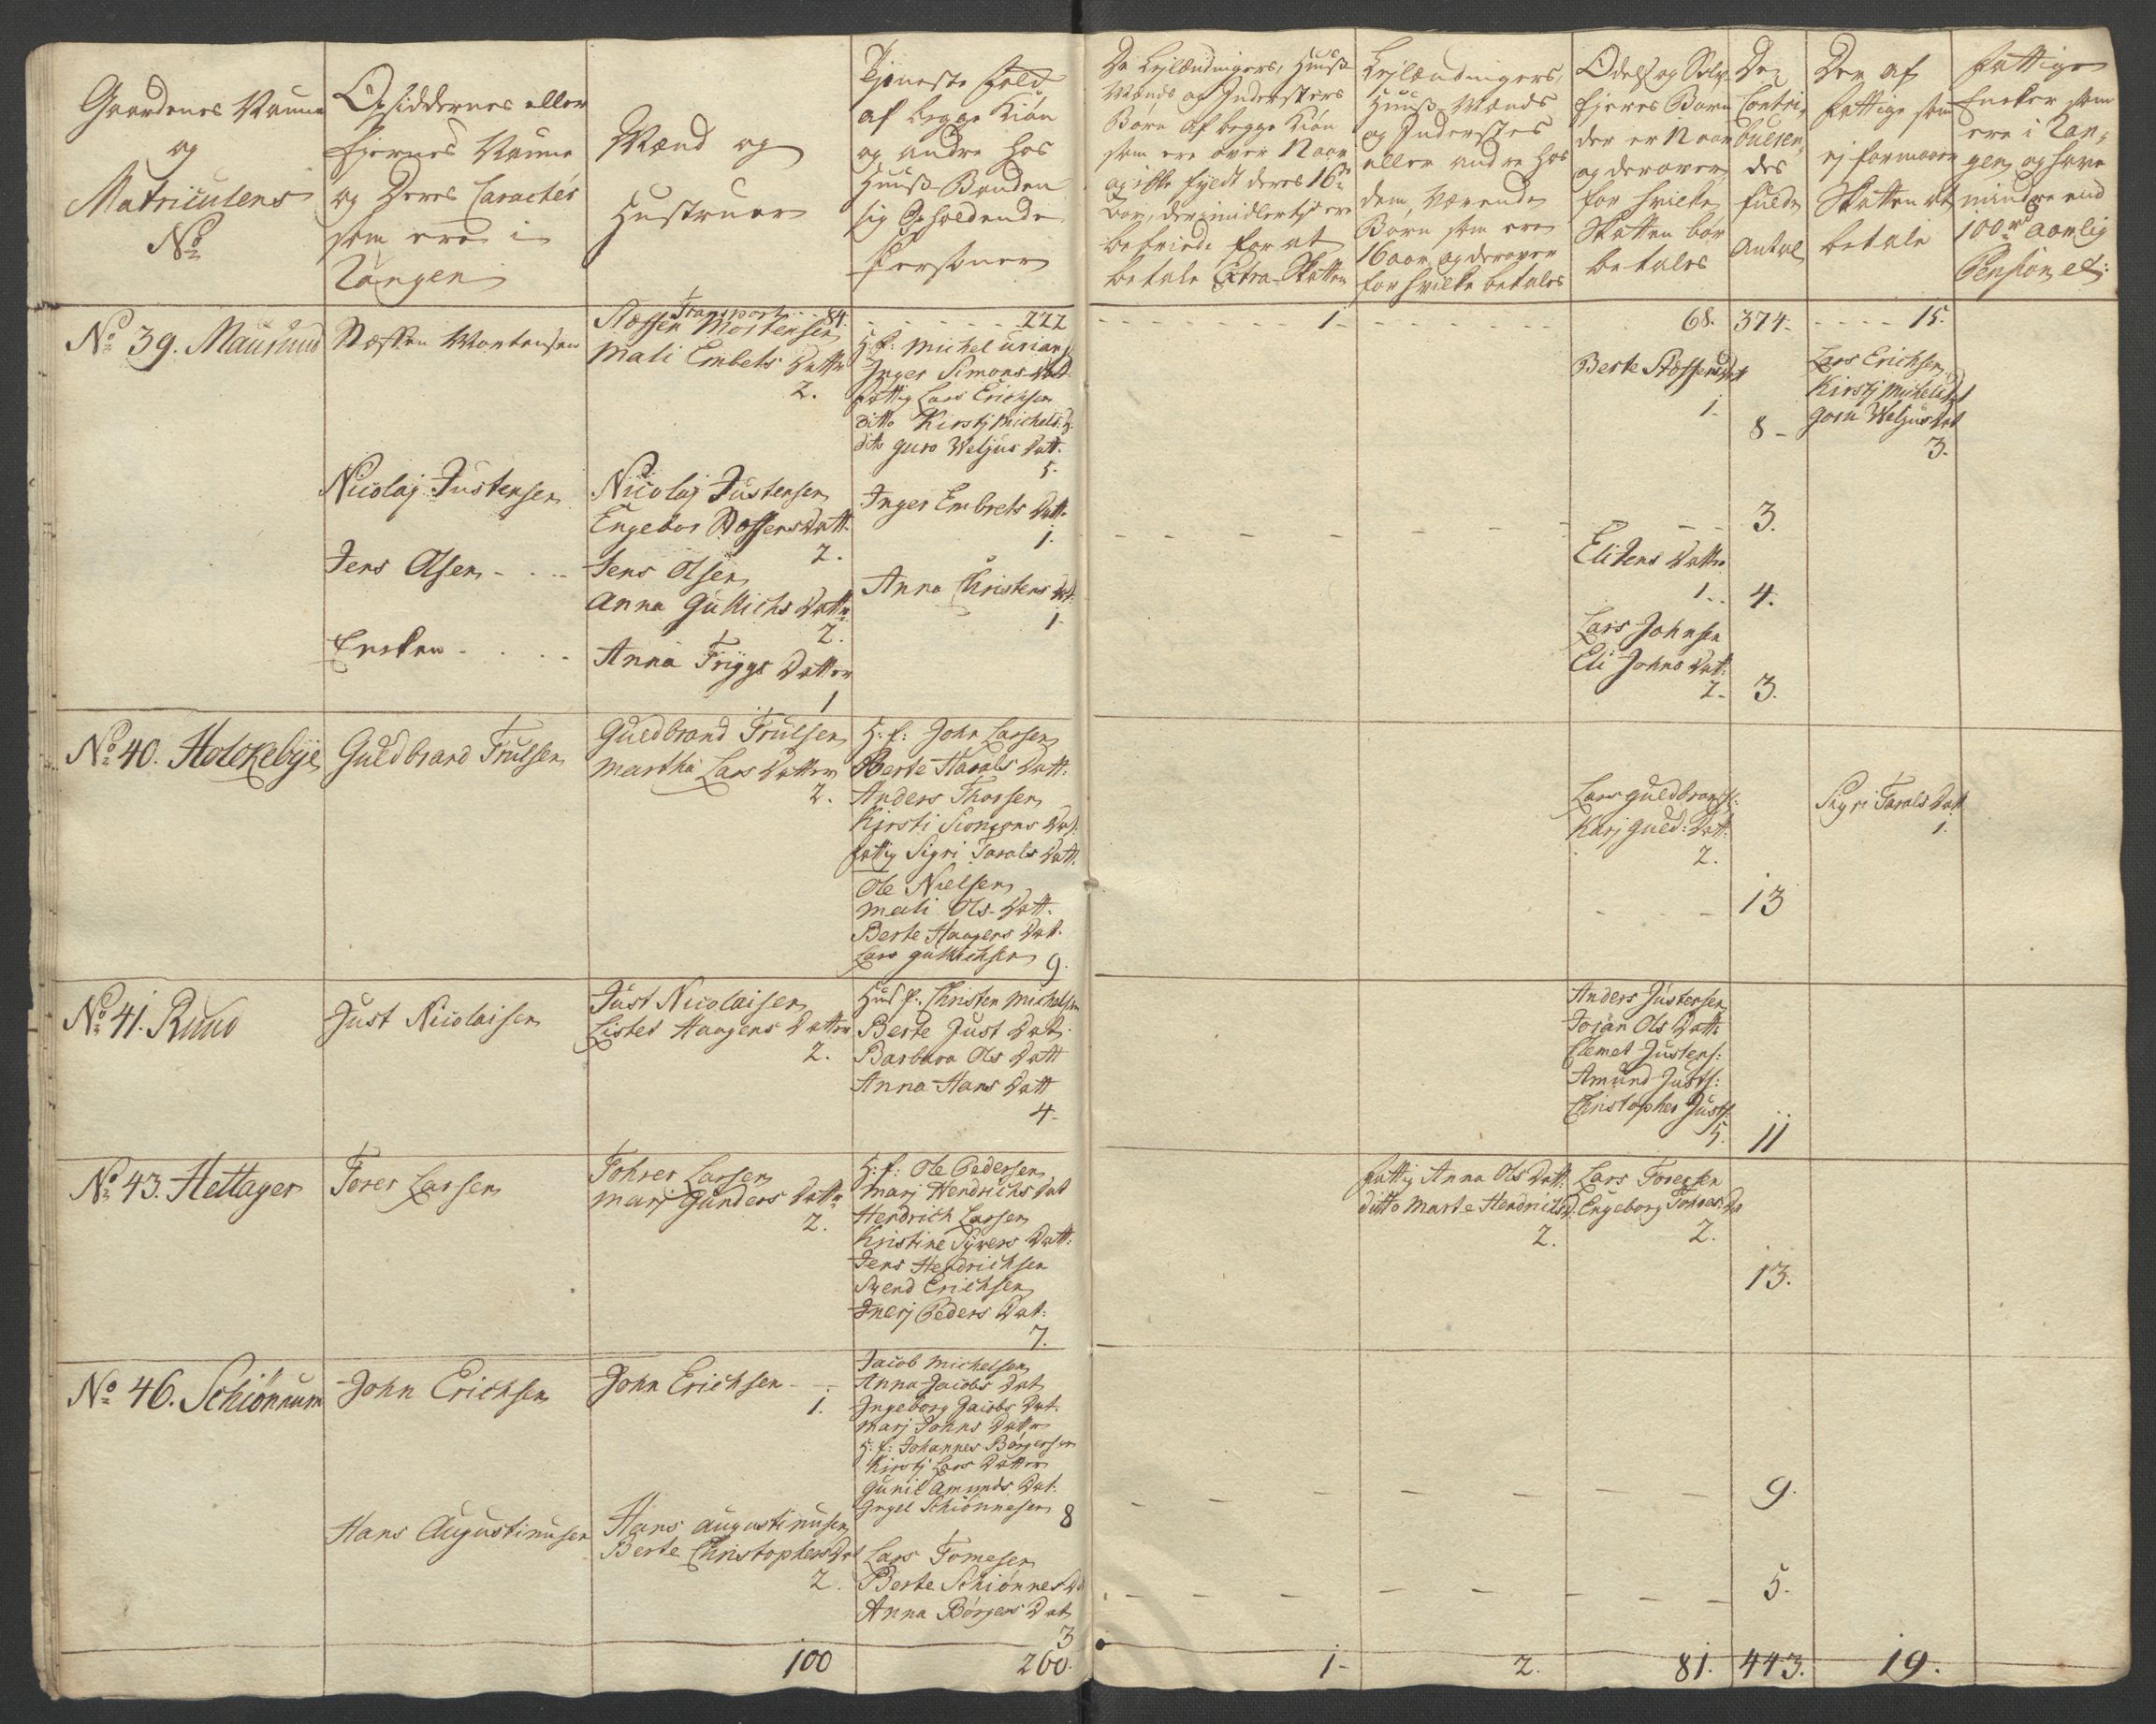 Gaardenes Naune
og
Matriculens
No
Opsiddernes eller
Ejernes Naune
og Deres Carachter
som ere i
Rangen
Mænd og
Hustruer
Tjeneste Folk
af begge Kiøn
og andre hos
Huuss-Bonden
sig Opholdende
Personer
De Lejlændingers, Huuss
Mænds og Indersters
Børn af begge Kiøn
som ere over 12 aar
og ikke fyldt deres 16de
Aar, der imidlertid ere
befriede for at
betale Extra-Skatten
Lejlændingers,
Huuss-Mænds
og Inderstes
eller andre hos
dem, værende
Børn som ere
16 aar og derover
for hvilke betales
Odels og Selv-
Ejeres Børn
der er 12 aar
og derover,
for hvilke
Skatten bør
betales
De
Contri-
bueren-
des
fulde
Antal
Der af
fattige som
ej formaar
Skatten at
betale
Fattige
Encker som
ere i Ran-
gen, og have
mindre end
100 rd aarlig
Pension etc:
Transport - - 84. - - - - - - 222 - - - - - - - 1 - - - - - - - 68. 374 - - - - - 15.
No 39. Maurund
Steffen Mortensen
Steffen Mortensen
Mali Embrets Datter
2.
H: f: Michel
Inger Simons Dat
fattig Lars Erichsen
ditto Kirstj Michels D:
dito Guro Weljus Datt.
5.
Berte Steffens Dat
1.
8 -
Lars Erichsen
Kirstj Michels Dat
Goru Weljus Dat
3.
Nicolaj Justensen
Nicolaj Justensen
Engebor Steffens Datt.
2.
Inger Embrets Datt.
1.
3.
Jens Olsen - . . -
Jens Olsen
Anna Gullichs Datter
2.
Anna Christens Dat:
1
Eli Jens Datter
1. . 4.
Encken - . . -
Anna Tryggs Datter
1
Lars Johnsen
Eli Johns Dat:
2. 3.
No 40. Holckebÿe
Guldbrand Trulsen
Guedbrand Trulsen
Martha Lars Datter
2.
H: f: John Larsen
Berte Harals Datt.
Anders Thorsen
Kirsti Siongons Dat:
fattig Sigri Tarals Datt.
Ole Nielsen
Mali Ols Datt.
Berte Haagens Dat.
Lars Gullichsen 9.
Lars Guldbrands:
Karj Guld: Datt:
2.
13
Sigri Tarals Dat
1.
No 41. Ruud
Just Nicolaisen
Just Nicolaisen
Lisbet Haagens Datter
2.
Huus f: Christen Michelsen
Berte Just Dat.
Barbara Ols Datt
Anna Hans Datt
4 -
Anders Justensen
Jojan Ols Datt:
Clemet Justens:
Amund Justs:
Christopher Justs:
5. 11
No 43. Hellager
Torer Larsen
Tohrer Larsen
Marj Gunders Datter
2.
H: f: Ole Pedersen
Marj Hendrichs Dat
Hendrich Larsen
Kristine Syvers Datt:
Jens Hendrichsen
Svend Erichsen
Inerj Peders Dat:
7.
fattig Anna Ols Datt:
ditto Marte Hendrichs D:
2.
Lars Toresen
Engeborg Tohres: Da
2.
13.
No 46. Schiønnum
John Erichsen
John Erichsen - -
1.
Jacob Michelsen
Anna Jacobs Dat
Ingeborg Jacobs Dat.
Marj Johns Datter
H: f: Johannes Børgersen
Kirstj Lars Datter
Gunil Amunds Dat.
Ingel Schiønnesen 8
9.
Hans Augustinusen
Hans Augustinusen
Berte Christophers Dat
2.
Lars Tomesen
Berte Schiønnes Da
Anna Børgers Dat
3
5.
100 260. 1 - 2. 81. 443. 19.